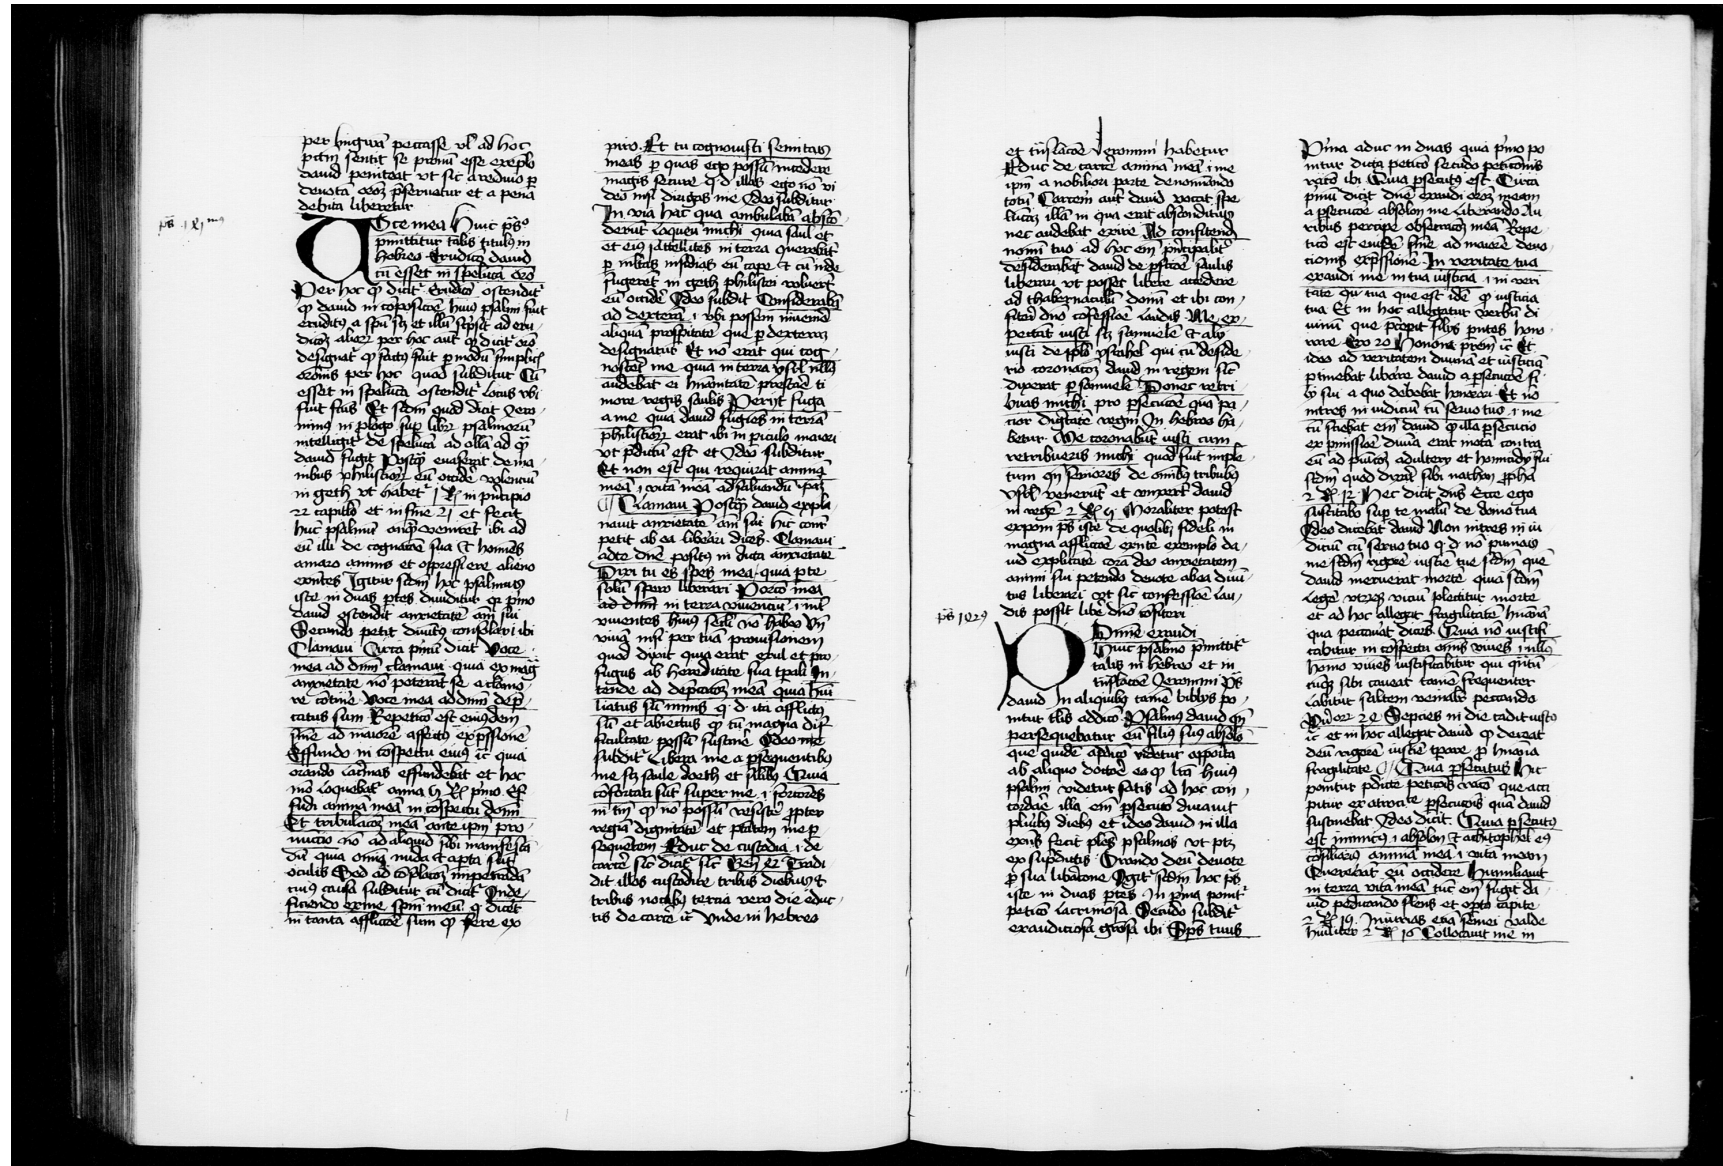 per linguam peccasse vl' ad hoc
pctm sentit se pronū esse exēplo
dauid peniteat vt sic a reduuio p
deuota orōe p̄seruetur et a pena
debita liberetur
ps 141mus
Voce mea Huic ps̄o
p̄mittitur talis titulus in
hebreo Eruditō dauid
cū esset in spelūca orō
Per hoc q̄ dicitr Eruditō ostenditr
q̄ dauid in cōpositōe huiꝰ psalmi fuit
eruditꝰ a spū scō et illū scrpsit ad eru
ditōꝫ alioꝝ per hoc aūt q̄ dicitr orō
designatr q̄ factꝰ fuit p modū simplicis
orōnis per hoc quod subditur Cū
esset in spelūca ostenditr locus vbi
fuit fcūs Et scdm quod dicit Jero
nimꝰ in plogo sup libr psalmorū
intelligitr de spelūca ad ollā ad q̄
dauid fugit Postq̄ euaserat de ma
nibus philistioꝝ eū occidē volenciū
in geth vt habetr 1 Rꝫ in prīcipio
22 capituli et in fine 21 et fecit
hūc psalmū anq̄ venirēt ibi ad
eū illi de cognacōe sua et homīes
amaro animo et oppressi ere alieno
exn̄tes Igitur scdm hoc psalmus
iste in duas ptes diuiditur qr pmo
dauid ostendit anxietatē aīm sui
Secundo petit diuitꝰ consolari ibi
Clamaui Circa pmū dicit Voce
mea ad dnm clamaui quia ex mag
anxietate nō poterat se a clamo
re cōtinē Voce mea ad dnm dep
catus sum Repeticō est eiusdem
sīne ad maiorē affectꝰ exp̄ssionē
Effundo in cōspectu eius ic quia
orando lacrimas effundebat et hoc
mō loquebatr anna 1 Rꝫ pmo Ef
fudi animā meā in cōspectu domi
Et tribulacōꝫ meā ante ipm pro
nuncio nō ad aliquid sibi manifestā
dū quia omīa nuda et apta sūt
oculis Sed ad cōsolacōꝫ impetrādā
cuiꝰ causa subditur cū dicitr Inde
ficiendo ex me spm meū q dicēt
in tanta afflictōe sum q̄ fere ex
piro. Et tu cognouisti semitas
meas p quas ego possū incedere
magis secure q d illas ego nō vi
deo nisi dirigas me Ideo subditur
In via hac qua ambulabā abscō
derūt laqueū michi quia saul et
et eiꝰ satellites in terra querebāt
p m̄ltas insidias eū cape et cū inde
fugerēt in geth philistei voluerūt
eū occidē Ideo subdit Considerabā
ad dexterā i vbi possem inuenire
aliquā prosperitatē que p dexterā
designatur Et nō erat qui cog
nosceret me quia in terra ysrl nullꝰ
audebat ei hūanitatē prestare ti
more regis saulis Perijt fuga
a me quia dauid fugiēs in terrā
philistioꝝ erat ibi in piculo maiori
vt pdictū est et Ideo subditur
Et non est qui requirat animā
meā i vitā meā ad saluandū ipaꝫ
Clamaui Postq̄ dauid expli
nauit anxietatē aīm sui hic cont
petit ab ea liberari dicēs Clamaui
ad te dne positꝰ in dicta anxietate
Dixi tu es spes mea quia p te
solū spero liberari Porcō mea
ad dnm in terra viuenciū i int
viuentes huiꝰ secli nō habeo vn
viuā nisi per tuā prouisionem
quod dixit quia erat exul et pro
fugus ab hereditate sua tpali In
tende ad depcacōꝫ meā quia hūi
liatus sū nimis q d ita afflictꝰ
sū et abiectus q̄ cū magna dif
ficultate possū sustinē Ideo me
subditr Libera me a psequentibꝰ
me scꝫ saule doeth et filibꝰ Quia
cōfortati sūt super me i fortiores
in tm q̄ nō possū resistē ppter
regiā dignitatē et ptatem me p
sequetem Educ de custodia i de
carcē sic dicitr sic Gen 42 Tradi
dit illos custodire tribus diebus et
tribus noctibꝰ tercia vero die educ
tis de carcē ic Vnde in hebreo
et tnslacōe Jeronimi habetur
Educ de carcē animā meā i me
ipm a nobiliori parte denominando
totū Carcem aūt dauid vocat spe
lūcaꝫ illā in qua erat absconditus
nec audebat exire Ad confitendꝫ
nomī tuo ad hoc em prīcipalitr
desiderabat dauid de psecutōe saulis
liberari vt posset libere accedere
ad thabernaculū domi et ibi con
fiteri dno cōfessiōe laudis Me ex
pectāt iusti scꝫ samuelē et alij
iusti de pplo ysrahel qui cū deside
rio coronacōꝫ dauid in regem sic
dixerat p samuelē Donec retri
buas michi pro psecucōe quā pa
cior dignitatē regni In hebreo ha
betur Me coronabūt iusti cum
retribueris michi quod fuit imple
tum qn seniores de omībꝰ tribubꝰ
ysrl' venerūt et vnxert dauid
in regē 2 Rꝫ 5 Moraliter potest
exponi ps iste de quolibꝫ fideli in
magna afflictōe exn̄te exemplo da
uid explicātē corā deo anxietatem
animi sui petendo deuote ab ea diui
tus liberari vt sic confessiōe lau
dis possit libē dno cōfiteri
ps 142us
Domine exaudi
Huic psalmo p̄mittitr
talis in hebreo et in
tnslacōe Jeronimi Ps
dauid In aliquibꝫ tamē biblijs po
nitur tlis addicō Psalmus dauid qn
persequebatur eū filiꝰ suꝰ absolō
que quidē addicō videtur apposita
ab aliquo doctoē eo q̄ lrā huiꝰ
psalmi videtur satis ad hoc con
cordare illa em psecutō durauit
pluribꝫ diebꝰ et ideo dauid in illa
exn̄s fecit ples psalmos vt ptꝫ
ex supdictis Orando deū deuote
p sua libacōne Igitr scdm hoc ps
iste in duas ptes In pma ponitr
petitō lacrimosa Secūdo subditr
exauditiosa grosa ibi Sps tuus
Prima adhuc in duas quia pmo po
nitur dicta peticō secūdo peticōnis
racō ibi Quia psecutꝰ est Circa
pmū dicit Dne exaudi oroꝫ meam
a psecucōe absolon me liberando Au
ribus percipe obsecracōꝫ meā Repe
ticō est eiusdē sīne ad maiorē deuo
cionis exp̄ssionē In veritate tua
exaudi me in tua iusticia i in veri
tate qr tua que est idē q̄ iusticia
tua Et in hoc allegatur verbū di
uinū que precipit filijs pntes hono
rare Exo 20 Honora prem ic Et
ideo ad veritatem diuinā et iusticiā
ptinebat libare dauid a psecucōe fi
lij sui a quo debebat honorari Et nō
intres in iudiciū cū seruo tuo i me
cū sciebat em dauid q̄ illa psecucio
ex pmissiōe diuina erat mota contra
eū ad puncōꝫ adulterij et homicidij sui
scdm quod dixit sibi nathon ppha
2 Rꝫ 12 Hec dicit dns Ecce ego
suscitabo sup te malū de domo tua
Ideo dicebat dauid Non intres in iu
diciū cū seruo tuo q d nō punias
me scdm rigorē iusticie tue scdm que
dauid meruerat mortē quia scdm
legē vtrꝫqꝫ viciū plectitur morte
et ad hoc allegat fragilitatē humāā
qua peccauit dices Quia nō iustifi
cabitur in cōspectu omīs viuēs i nullꝰ
homo viuēs iustificabitur qui quātū
cūqꝫ sibi caueat tamē frequenter
labitur saltem venialr peccando
Puer 24 Sepcies in die cadit iusto
ic et in hoc allegat dauid q̄ debeat
deū rigorē iusticie tpare p hūana
fragilitate Quia persecutus Hic
ponitur pdicte peticōis racō que acci
pitur ex atrocitate psecucōis quā dauid
sustinebat Ideo dicit Quia psecutꝰ
est inimicꝰ i absolon et achitophel eiꝰ
cōsiliarius animā meā i vitā meam
Querebāt eū occidere Humiliauit
in terra vitā meā tūc em fugit da
uid pedicando flens et opto capite
2 Rꝫ 15 Iniurias etiā semei valde
hūiliter 2 Rꝫ 16 Collocauit me in